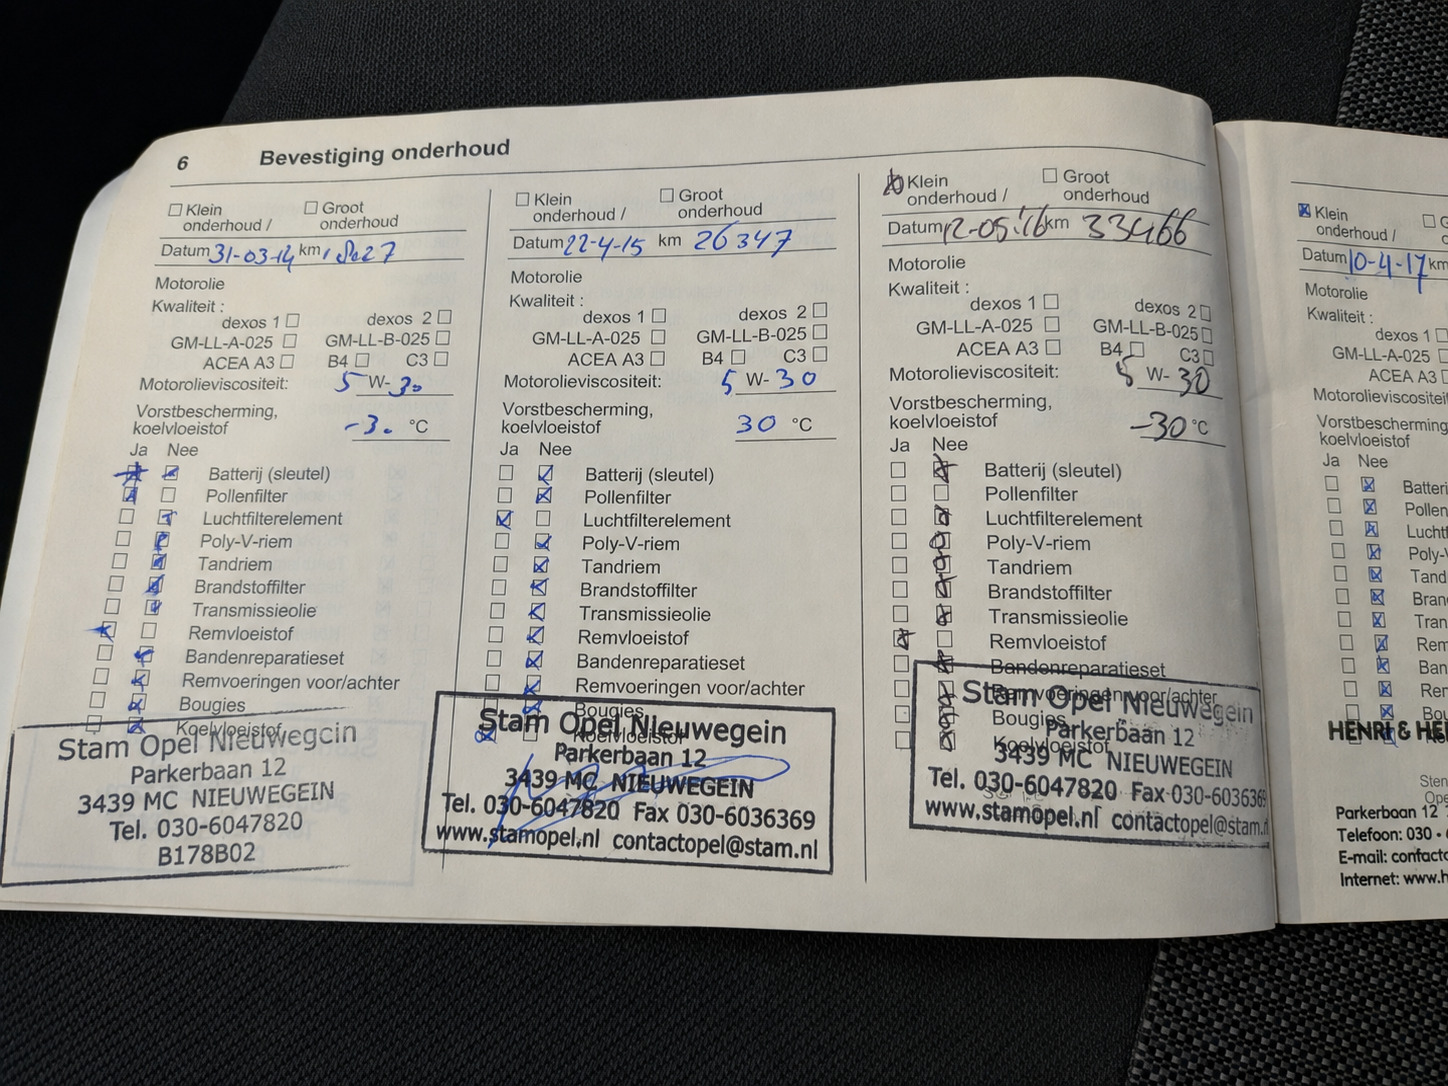 6 Bevestiging onderhoud
☐ Klein onderhoud / ☐ Groot onderhoud
Datum 31-03-14 km
Motorolie
Kwaliteit :
dexos 1 ☐ dexos 2 ☐
GM-LL-A-025 ☐ GM-LL-B-025 ☐
ACEA A3 ☐ B4 ☐ C3 ☐
Motorolieviscositeit: 5 W-30
Vorstbescherming,
koelvloeistof -30 °C
Ja Nee
Batterij (sleutel)
Pollenfilter
Luchtfilterelement
Poly-V-riem
Tandriem
Brandstoffilter
Transmissieolie
Remvloeistof
Bandenreparatieset
Remvoeringen voor/achter
Bougies
Koelvloeistof
Stam Opel Nieuwegein
Parkerbaan 12
3439 MC NIEUWEGEIN
Tel. 030-6047820
B178B02
☐ Klein onderhoud / ☐ Groot onderhoud
Datum 22-4-15 km 26347
Motorolie
Kwaliteit :
dexos 1 ☐ dexos 2 ☐
GM-LL-A-025 ☐ GM-LL-B-025 ☐
ACEA A3 ☐ B4 ☐ C3 ☐
Motorolieviscositeit: 5 W-30
Vorstbescherming,
koelvloeistof 30 °C
Ja Nee
Batterij (sleutel)
Pollenfilter
Luchtfilterelement
Poly-V-riem
Tandriem
Brandstoffilter
Transmissieolie
Remvloeistof
Bandenreparatieset
Remvoeringen voor/achter
Bougies
Koelvloeistof
Stam Opel Nieuwegein
Parkerbaan 12
3439 MC NIEUWEGEIN
Tel. 030-6047820 Fax 030-6036369
www.stamopel.nl contactopel@stam.nl
☒ Klein onderhoud / ☐ Groot onderhoud
Datum 12-05-'16 km 33466
Motorolie
Kwaliteit :
dexos 1 ☐ dexos 2 ☐
GM-LL-A-025 ☐ GM-LL-B-025 ☐
ACEA A3 ☐ B4 ☐ C3 ☐
Motorolieviscositeit: 5 W-30
Vorstbescherming,
koelvloeistof -30 °C
Ja Nee
Batterij (sleutel)
Pollenfilter
Luchtfilterelement
Poly-V-riem
Tandriem
Brandstoffilter
Transmissieolie
Remvloeistof
Bandenreparatieset
Remvoeringen voor/achter
Bougies
Koelvloeistof
Stam Opel Nieuwegein
Parkerbaan 12
3439 MC NIEUWEGEIN
Tel. 030-6047820 Fax 030-6036369
www.stamopel.nl contactopel@stam.n
☒ Klein onderhoud / ☐ G
Datum 10-4-17 km
Motorolie
Kwaliteit :
dexos 1 ☐
GM-LL-A-025 ☐
ACEA A3 ☐
Motorolieviscositei
Vorstbescherming
koelvloeistof
Ja Nee
Batteri
Pollen
Lucht
Poly-V
Tand
Bran
Tran
Rem
Ban
Rer
Bo
HENRI & HE
Sten
Ope
Parkerbaan 12
Telefoon: 030 -
E-mail: contact
Internet: www.h